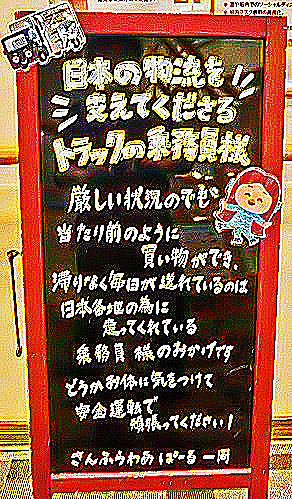 日本の物流を
支えてくださる
トラックの乗務員様
厳しい状況の中でも
当たり前のように
買い物ができ、
滞りなく毎日が送れているのは
日本各地の為に
走ってくれている
乗務員様のおかげです
どうかお体に気をつけて
安全運転で
頑張ってください！
さんふらわあ ぱーる 一同